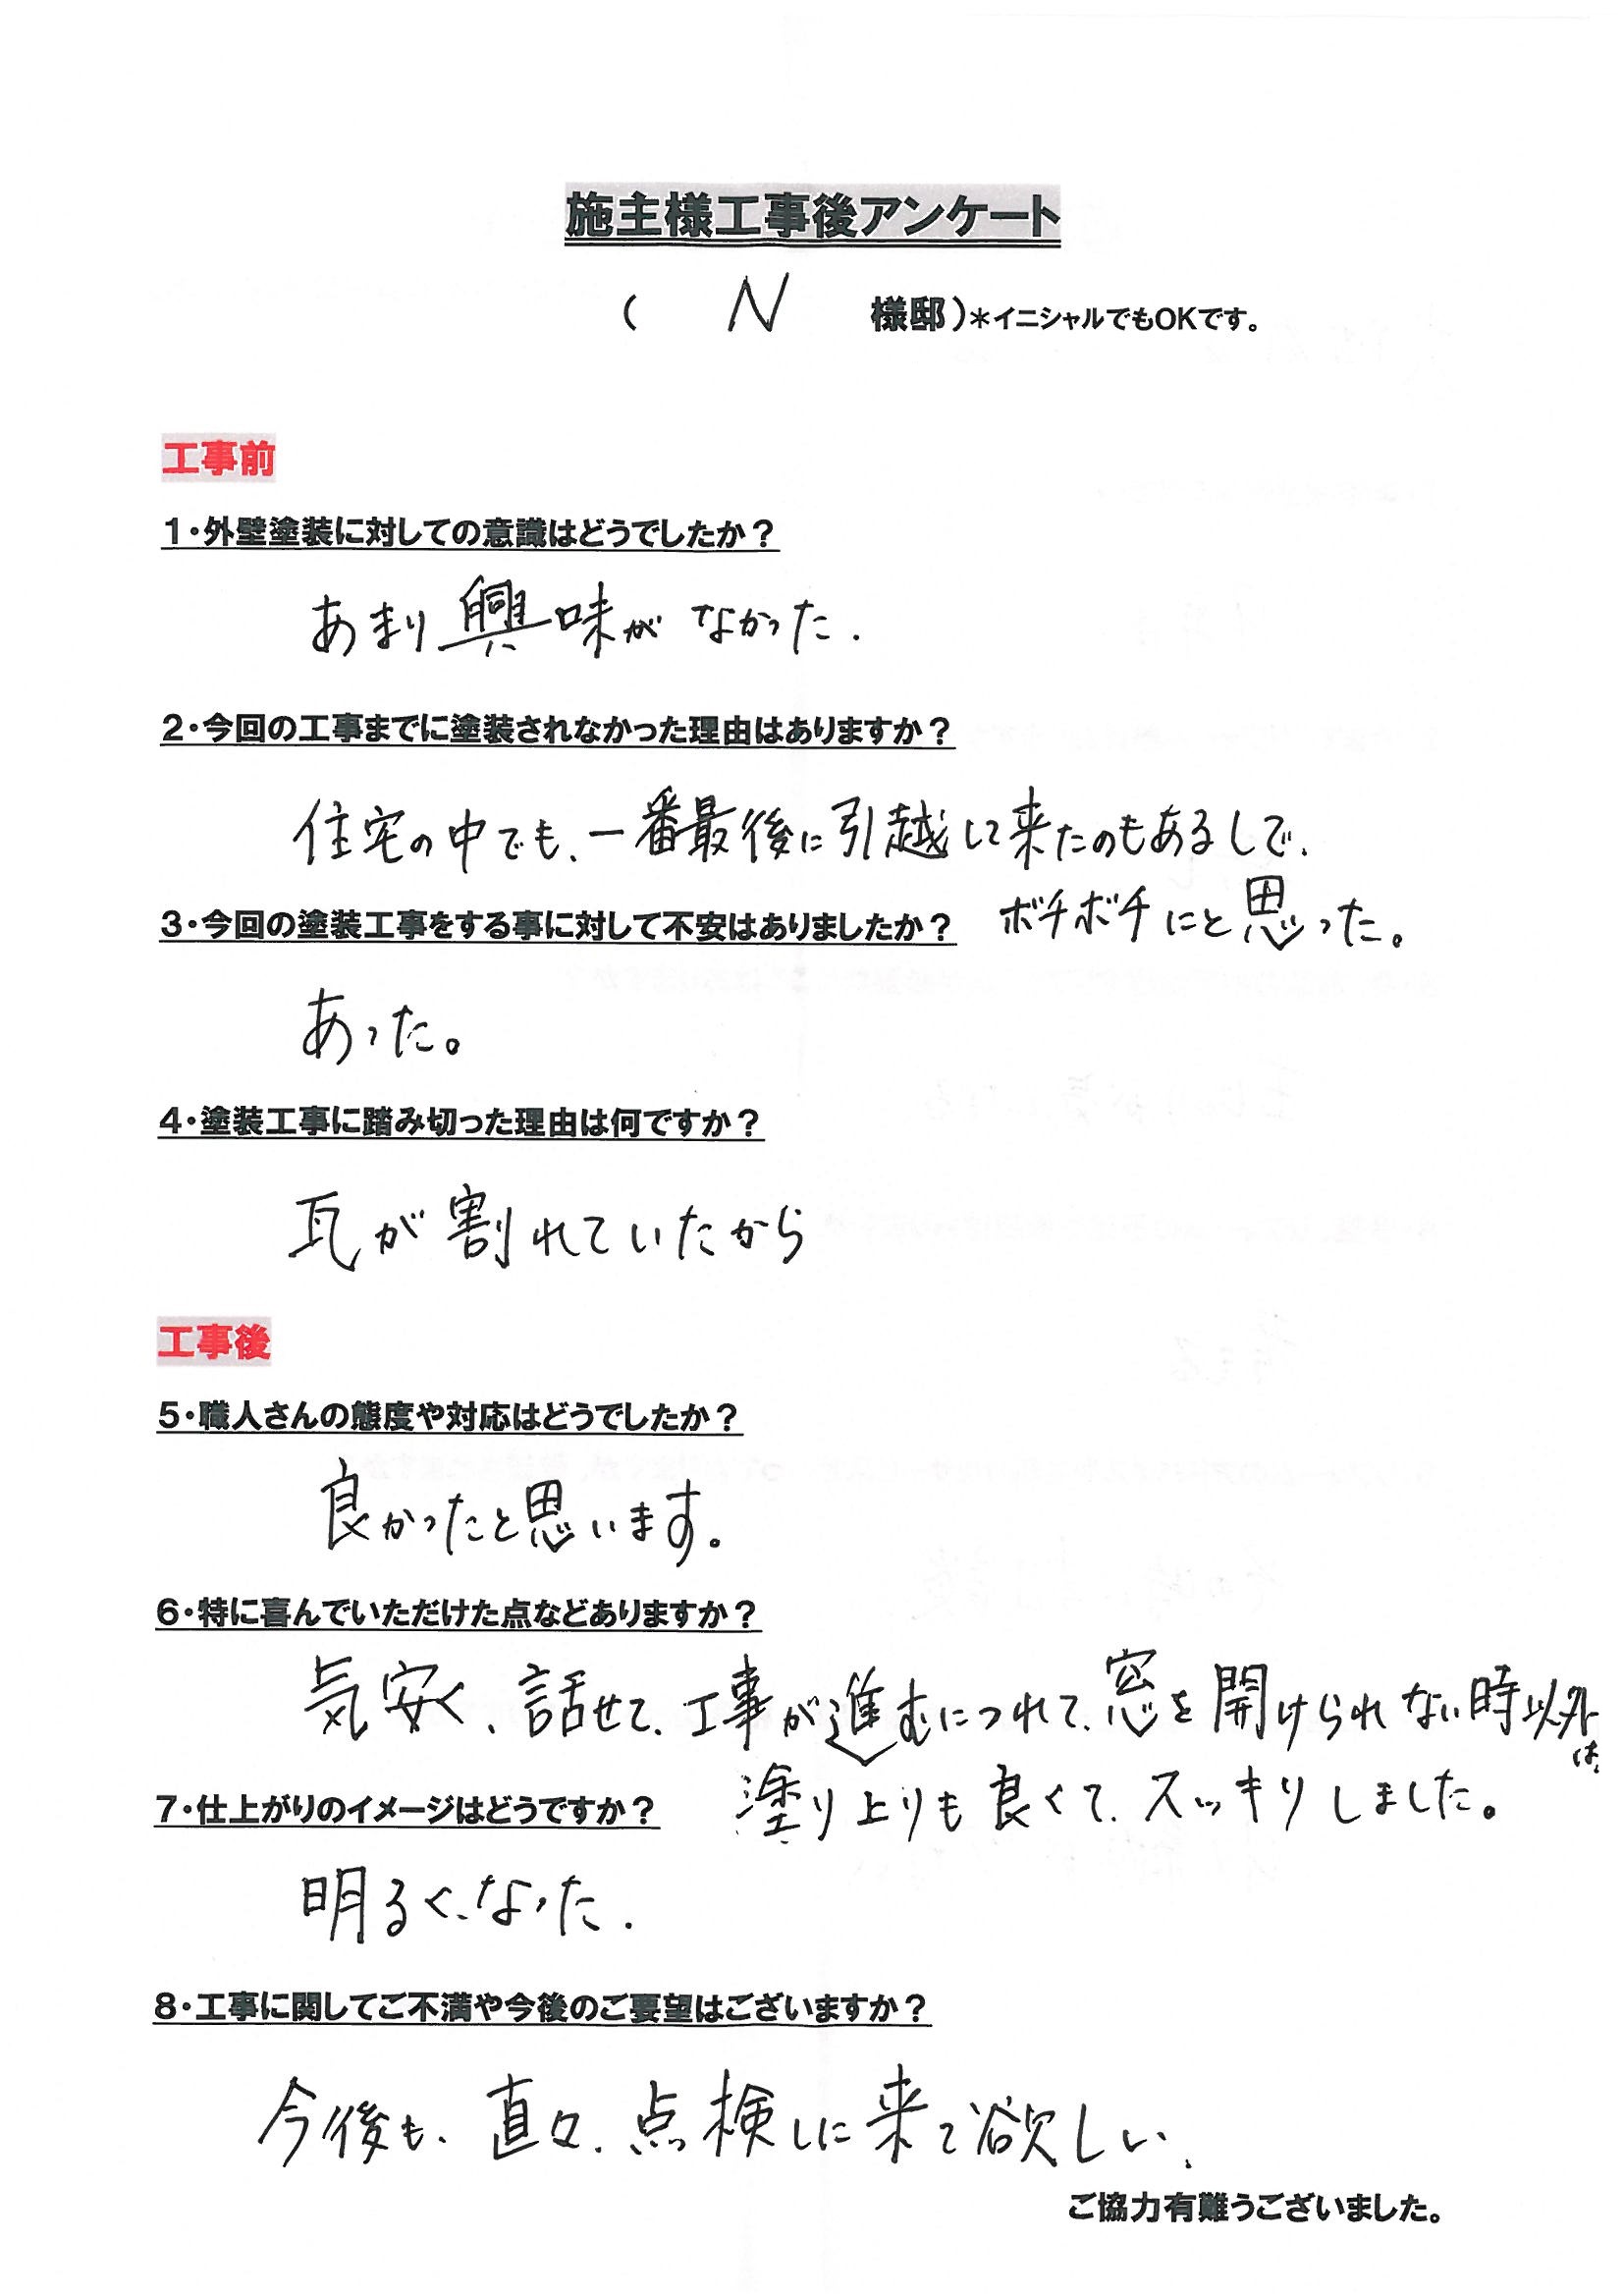 施主様工事後アンケート
( N 様邸)*イニシャルでもOKです。
工事前
1・外壁塗装に対しての意識はどうでしたか?
あまり興味がなかった.
2・今回の工事までに塗装されなかった理由はありますか?
住宅の中でも、一番最後に引越して来たのもあるしで、
ボチボチにと思った。
3・今回の塗装工事をする事に対して不安はありましたか?
あった。
4・塗装工事に踏み切った理由は何ですか?
瓦が割れていたから
工事後
5・職人さんの態度や対応はどうでしたか?
良かったと思います。
6・特に喜んでいただけた点などありますか?
気安く、話せて、工事が進むにつれて、窓を開けられない時以外は、
塗り上りも良くて、スッキリしました。
7・仕上がりのイメージはどうですか?
明るくなった.
8・工事に関してご不満や今後のご要望はございますか?
今後も、直々、点検しに来て欲しい、
ご協力有難うございました。